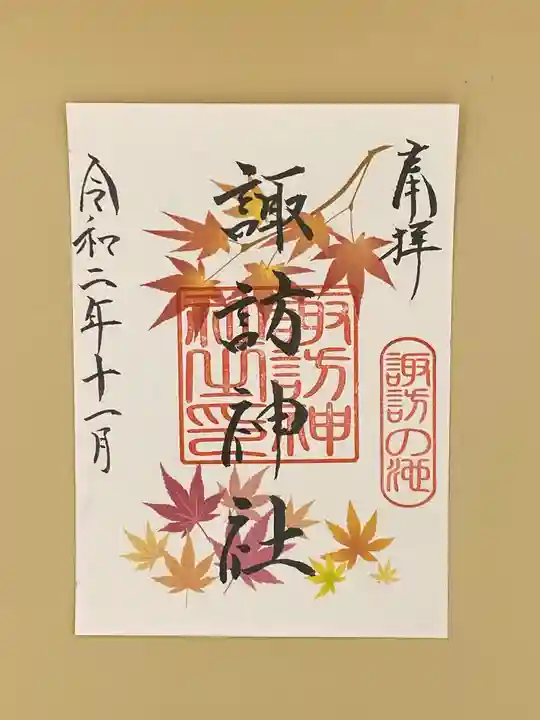 奉拝
諏訪の池
諏訪神社
諏訪神社之印
令和二年十一月